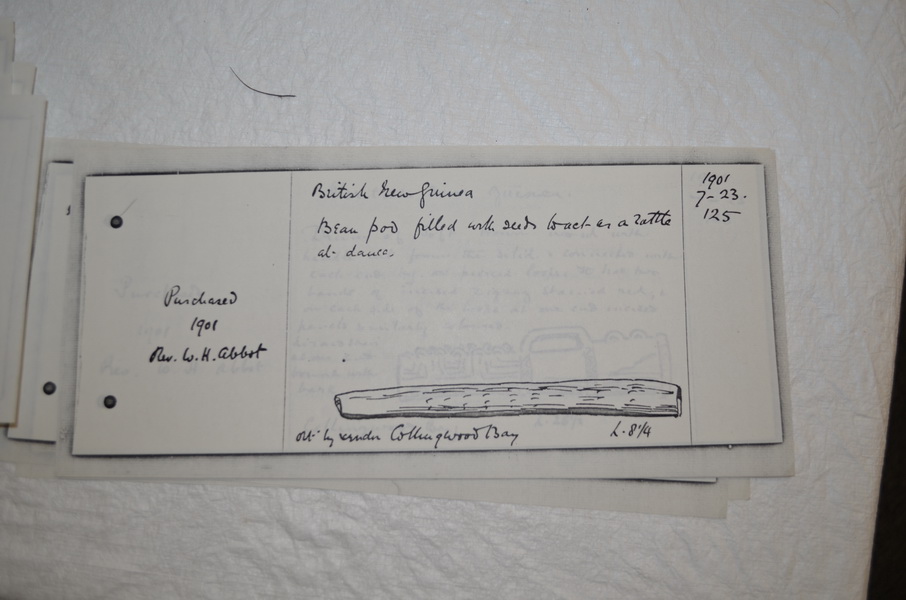 British New Guinea
Bean pod filled with seeds to act as a rattle
at dance.
Purchased
1901
Rev. W. H. Abbot
by vendor Collingwood Bay
L. 8 1/4
1901
7-23.
125